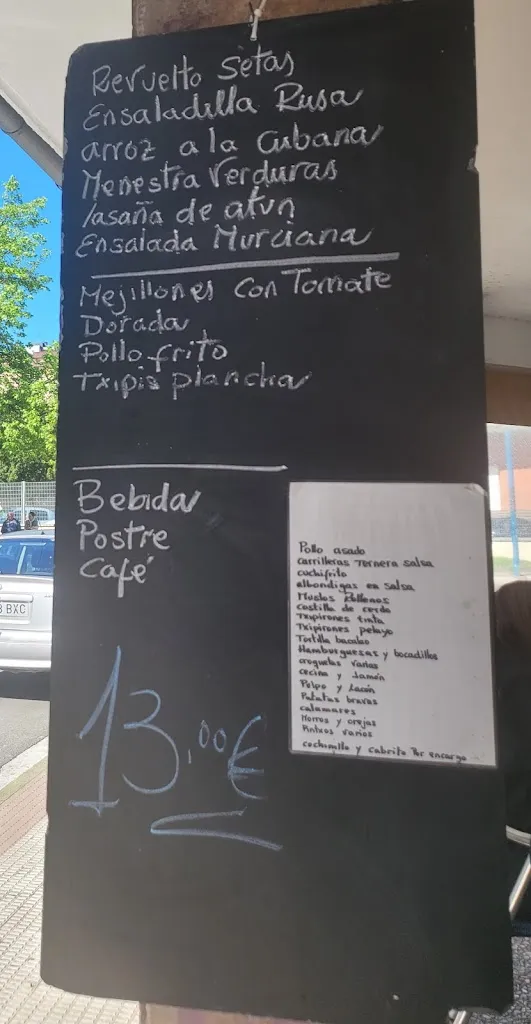 Revuelto Setas
Ensaladilla Rusa
arroz a la Cubana
Menestra Verduras
lasaña de atun
Ensalada Murciana
Mejillones con Tomate
Dorada
Pollo frito
Txipis plancha
Bebida
Postre
Café
13,00€
Pollo asado
carrilleras Ternera salsa
cochifrito
albondigas en salsa
Muslos Rellenos
Costilla de cerdo
Txipirones tinta
Txipirones pelayo
Tortilla bacalao
Hamburguesas y bocadillos
croquetas varias
cecina y Jamón
Pulpo y Lacón
Patatas bravas
calamares
Morros y orejas
Pintxos varios
cochinillo y cabrito Por encargo
BXC